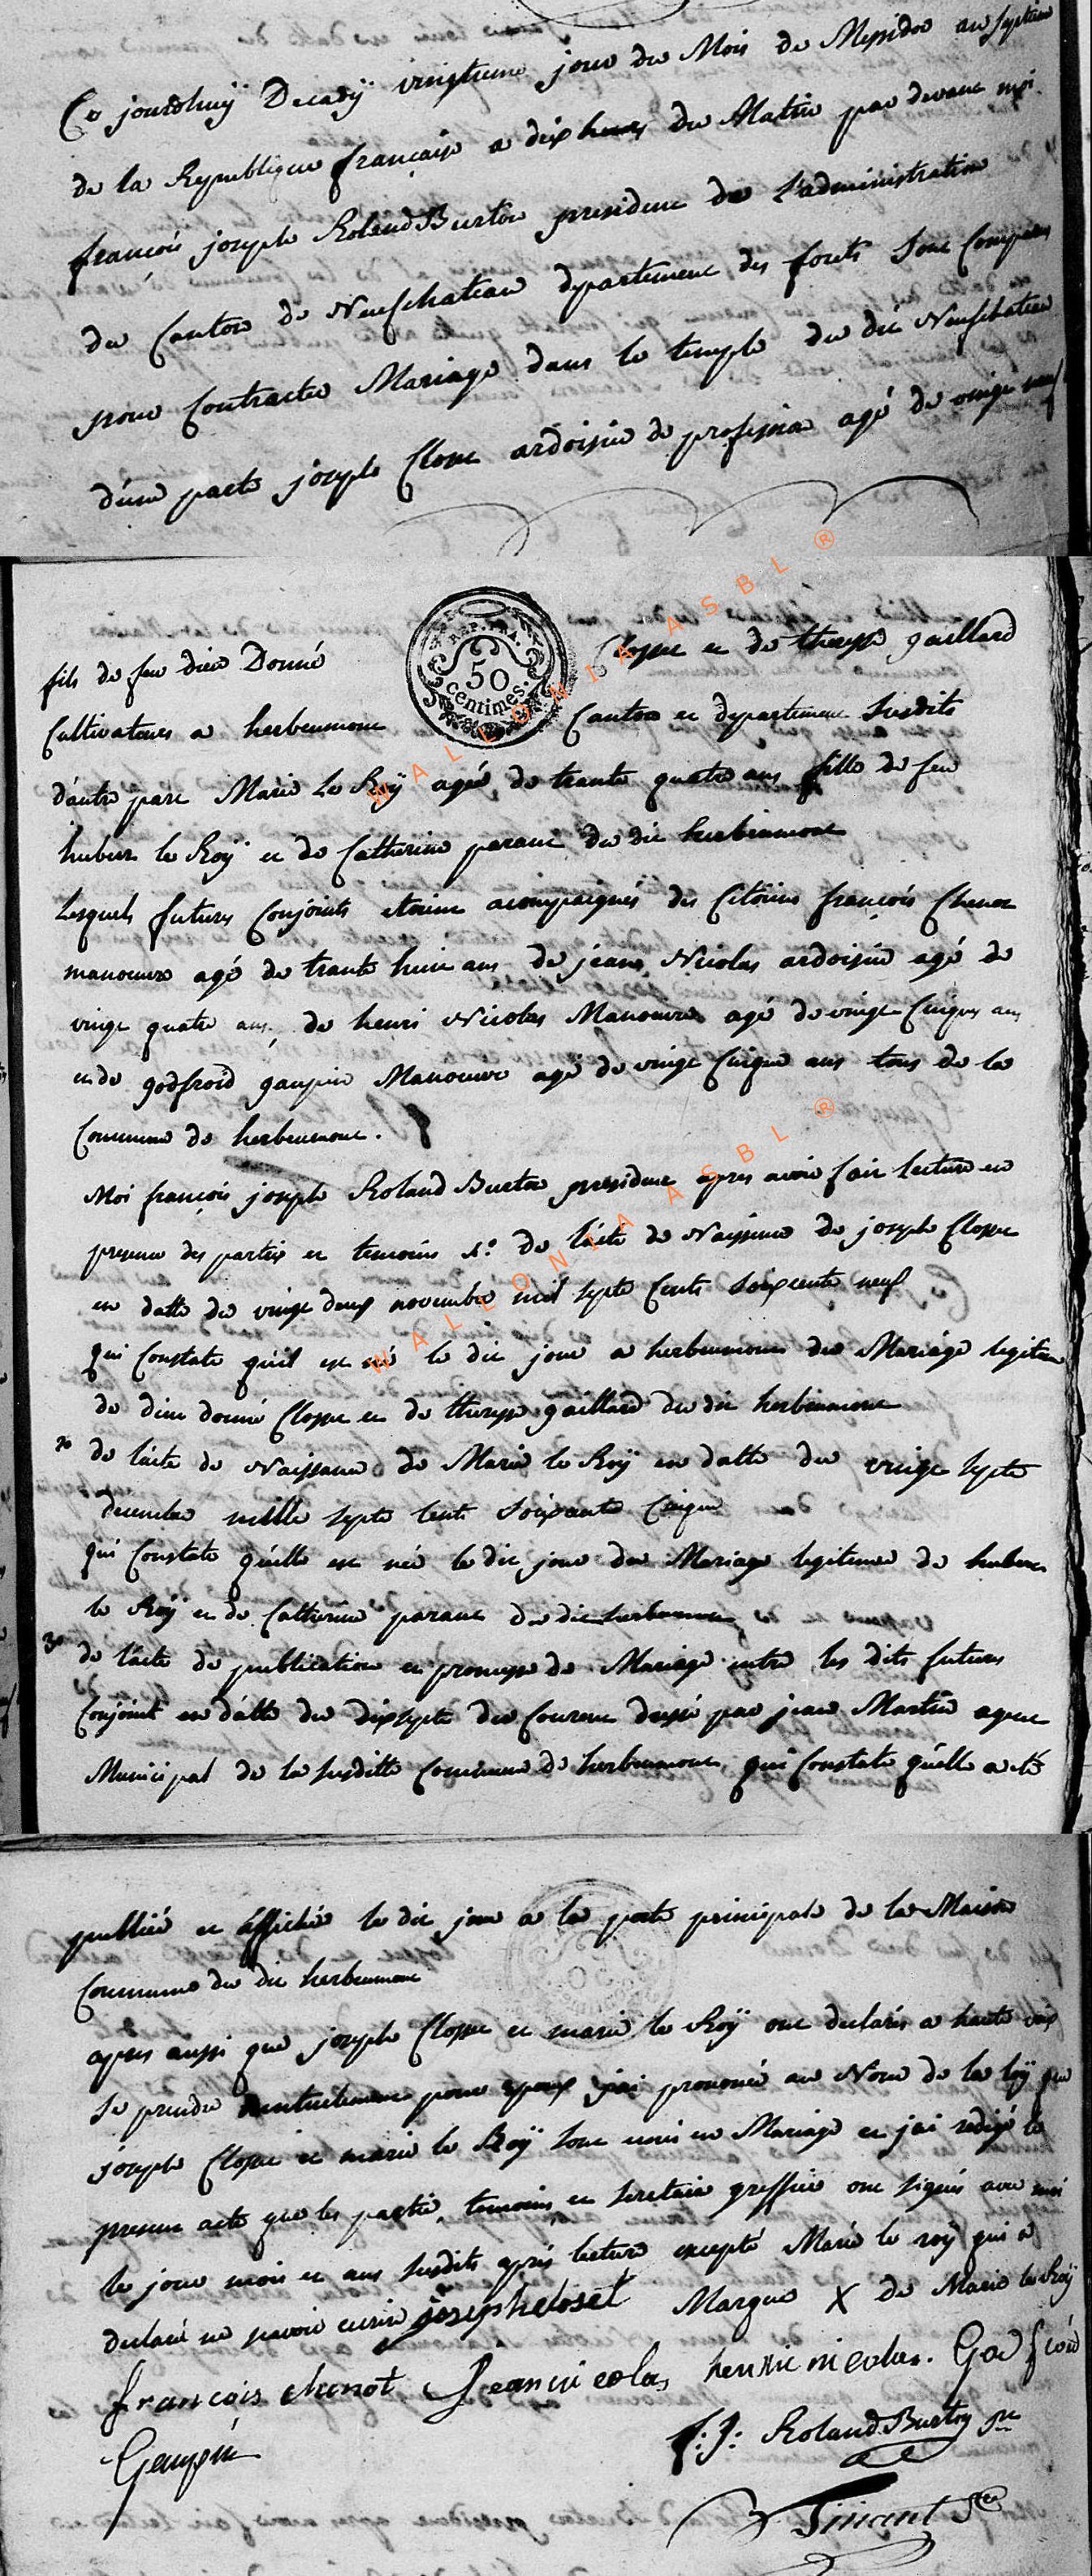 Ce jourdhuÿ Decadÿ vingtieme jour du Mois de Messidor an septieme
de la Republique française a dix heures du Matin par devant moi
françois joseph Roland Burton president de l'administration
du Canton de Neufchateau departement des forets sont Comparus
pour Contracter Mariage dans le temple du dit Neufchateau
d'une parte joseph Closse ardoisier de profession agé de vingt neuf
fils de feu dieu Donné Closse et de therese gaillard
Cultivateurs a herbeumont Canton et departement susdits
d'autre part Marie Le Roÿ agée de trante quatre ans fille de feu
hubert le Roÿ et de Catherine parant du dit herbeumont
Lesquels futurs Conjoints etoient acompagnés des Citoiens françois Chenot
manoeuvre agé de trante huit ans de jean Nicolas ardoisier agé de
vingt quatre ans, de henri Nicolas Manoeuvre agé de vingt Cinque ans
et de godfroid gaupin Manoeuvre agé de vingt Cinque ans tous de la
Commune de herbeumont.
Moi françois joseph Roland Burton president apres avoir fait lecture en
presence des parties et temoins 1.° de l'acte de Naissance de joseph Closse
en datte du vingt deux novembre mil septe Cents soixante neuf
qui Constate qu'il est né le dit jour a herbeumont du Mariage legitime
de dieu donné Closse et de therese gaillard du dit herbeumont
2° de l'acte de Naissance de Marie le Roÿ en datte du vingt septe
decembre mille septe Cents soixante Cinque
qui Constate qu'elle est née le dit jour du Mariage legitime de hubert
le Roÿ et de Catherine parant du dit herbeumont
3° de l'acte de publication et promesse de Mariage entre les dits futurs
Conjoint en datte du dixsepte du Courant dressé par jean Martin agent
Municipal de la susditte Commune de herbeumont qui Constate qu'elle a eté
publiée et affichée le dit jour a la porte principale de la Maison
Commune du dit herbeumont
apres aussi que joseph Closse et marie le Roÿ ont declarés a haute voix
se prendre mutuelement pour epoux j'ai prononcé au Nom de la loÿ que
joseph Closse et marie le Roÿ sont unis en Mariage et j'ai redigé le
present acte que les parties, temoins et secretaire greffier ont signés avec moi
le jour mois et ans susdits aprés lecture excepté Marie le roÿ qui a
declaré ne scavoir ecrire joseph closet Marque X de Marie le Roÿ
françois chenot Jean nicolas henri nicolas. Godfroid
Gaupin
f: J: Roland Burton
Tinant
REP. FRA.
50
centimes.
WALLONIA ASBL ®
WALLONIA ASBL ®